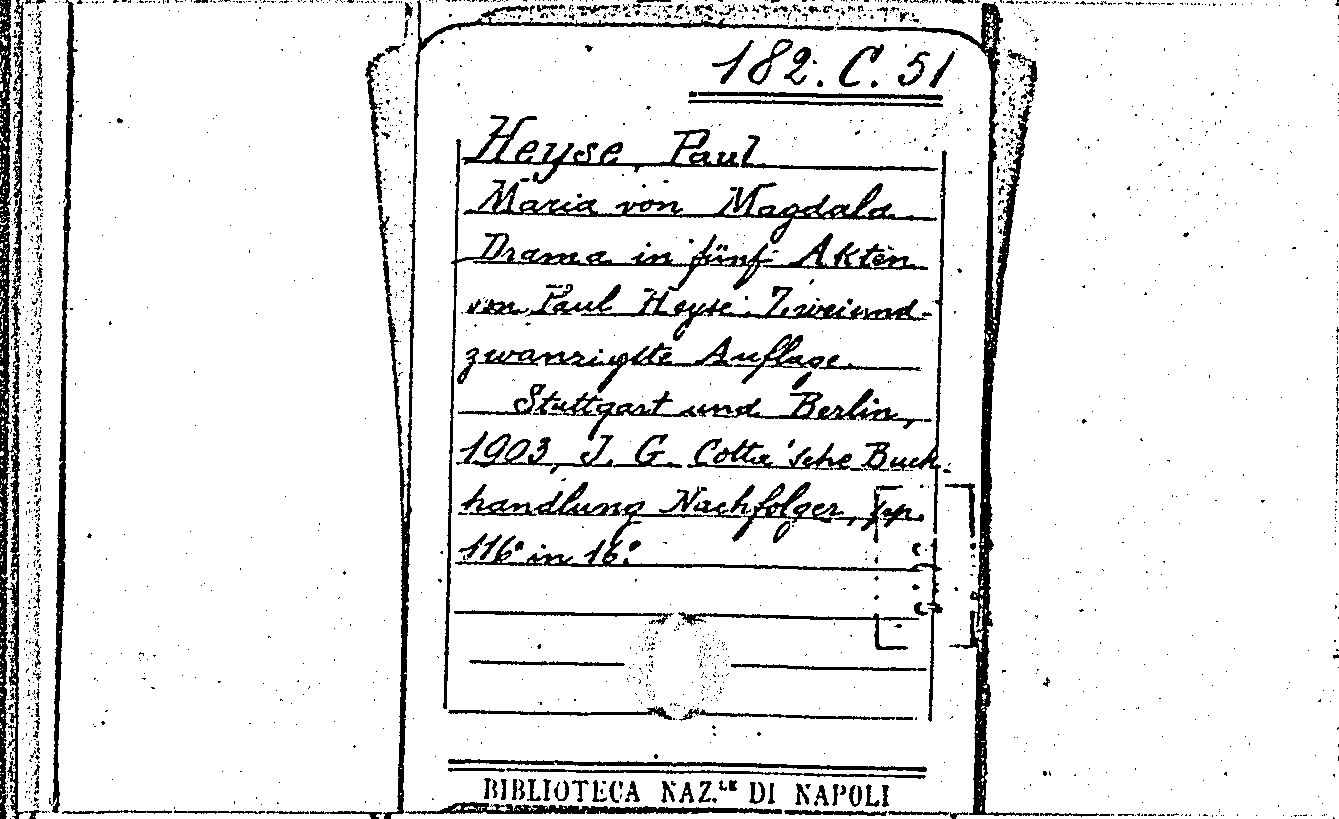 182. C. 51
Heyse, Paul
Maria von Magdala
Drama in fünf Akten
von Paul Heyse. Zweiund-
zwanzigste Auflage.
Stuttgart und Berlin,
1903, J. G. Cotta'sche Buch-
handlung Nachfolger, pp.
116 in 16.°
BIBLIOTECA NAZ.LE DI NAPOLI